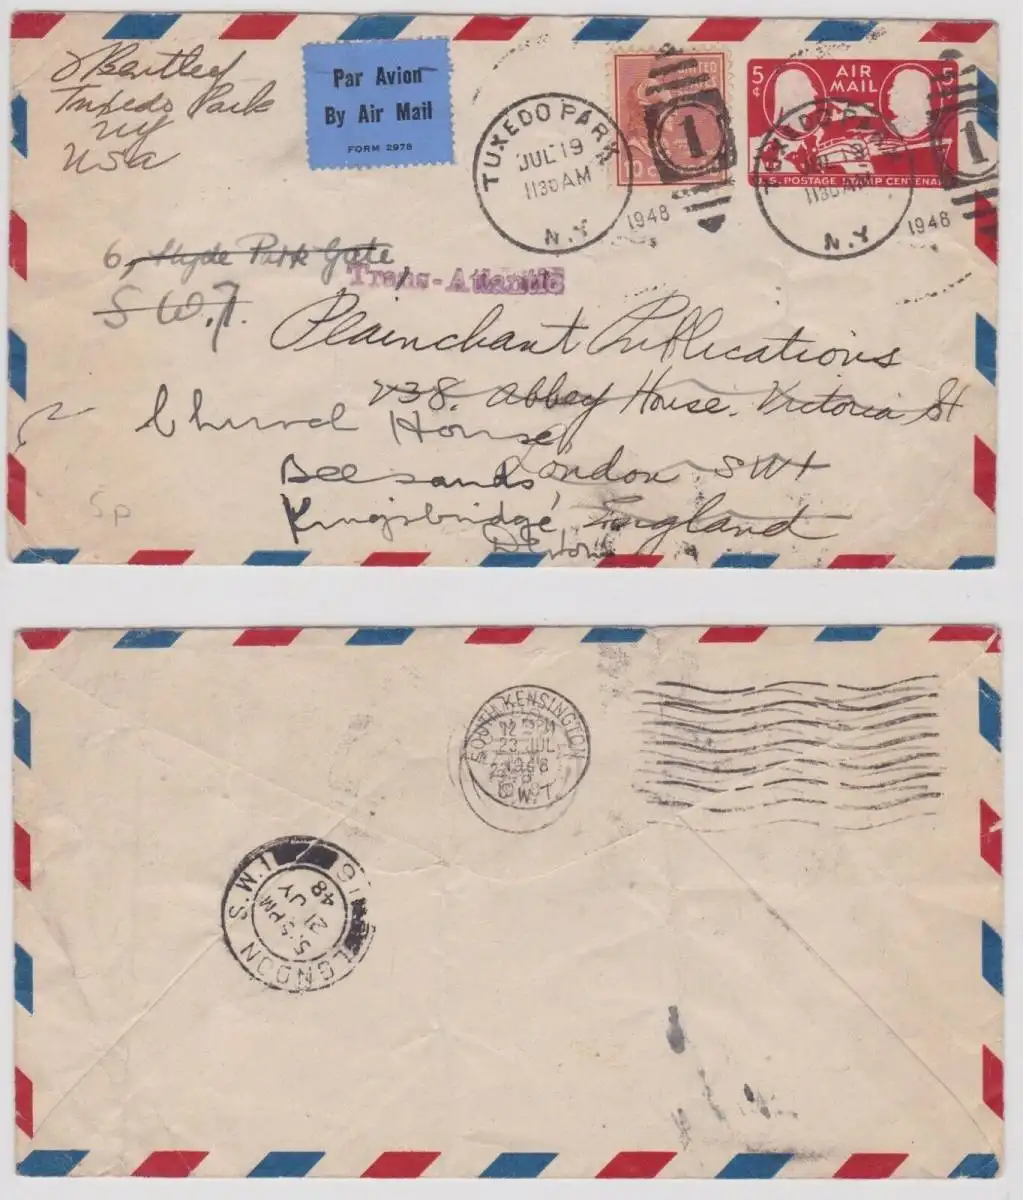 J Bentley
Tuxedo Park
NY
USA
Par Avion
By Air Mail
FORM 2978
TUXEDO PARK
JUL 19
1130 AM
1948
N.Y.
UNITED
10 C
1
5¢
AIR
MAIL
5¢
U.S. POSTAGE STAMP CENTENA
TUXEDO PARK
JUL 19
1130 AM
1948
N.Y.
1
6, Hyde Park Gate
S W.7.
Trans-Atlantic
Plainchant Publications
238. Abbey House. Victoria St
London SW1
England
Church House
Beesands
Kingsbridge
Devon
5p
SOUTH KENSINGTON
12 PM
23 JUL
1948
S.W.7.
LONDON S.W.1
5.15 PM
21 JY
48